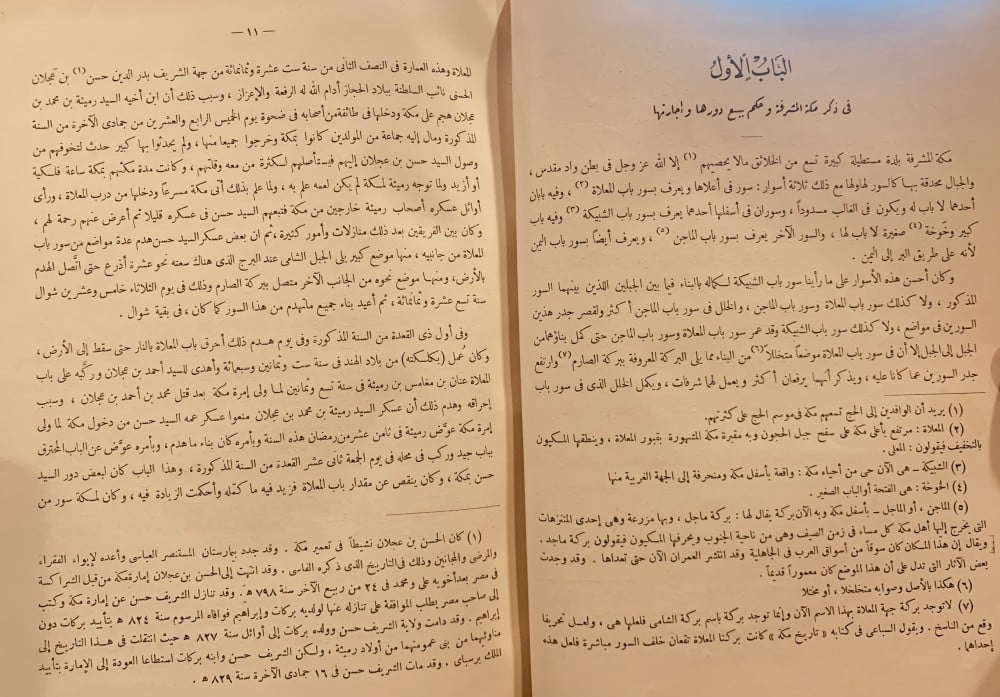 الباب الأول
فى ذكر مكة المشرفة وحكم بيع دورها وإجارتها
مكة المشرفة بلدة مستطيلة كبيرة تسع من الخلائق مالا يحصيهم (١) إلا الله عز وجل فى بطن واد مقدس ،
والجبال محدقة بها كالسور لها ولها مع ذلك ثلاثة أسوار : سور فى أعلاها ويعرف بسور باب المعلاة (٢) ، وفيه بابان
أحدهما لاباب له ويكون فى الغالب مسدوداً ، وسوران فى أسفلها أحدهما يعرف بسور باب الشبيكة (٣) وفيه باب
كبير وخوخة (٤) صغيرة لا باب لها ، والسور الآخر يعرف بسور باب الماجن (٥) ، ويعرف أيضاً بسور باب اليمن
لأنه على طريق البر إلى اليمن .
وكان أحسن هذه الأسوار على ما رأينا سور باب الشبيكة لكماله بالبناء فيما بين الجبلين اللذين بينهما السور
المذكور ، ولا كذلك سور باب المعلاة وسور باب الماجن ، والخلل فى سور باب الماجن أكثر ولقصر جدر هذين
السورين فى مواضع ، ولا كذلك سور باب الشبيكة وقد عمر سور باب المعلاة وسور باب الماجن حتى كمل بناؤهما من
الجبل إلى الجبل إلا أن فى سور باب المعلاة موضعاً متخللا (٦) من البناء مما يلى البركة المعروفة ببركة الصارم (٧) وارتفع
جدر السورين عما كانا عليه ، ويذكر أنهما يرفعان أكثر ويعمل لها شرفات ، ويكمل الخلل الذى فى سور باب
(١) يريد أن الوافدين إلى الحج تسعهم مكة فى موسم الحج على كثرتهم.
(٢) المعلاة : مرتفع بأعلى مكة على سفح جبل الحجون وبه مقبرة مكة المشهورة بقبور المعلاة ، وينطقها المكيون
بالتخفيف فيقولون : المعلى .
(٣) الشبيكة — هى الآن حى من أحياء مكة : واقعة بأسفل مكة ومنحرفة إلى الجهة الغربية منها
(٤) الخوخة : هى الفتحة أو الباب الصغير .
(٥) الماجن ، أو الماجل — بأسفل مكة وبه الآن بركة يقال لها : بركة ماجل ، وبها مزرعة وهى إحدى المتنزهات
التى يخرج إليها أهل مكة كل مساء فى زمن الصيف وهى من ناحية الجنوب ويحرفها المكيون فيقولون بركة ماجد .
ويقال إن هذا المكان كان سوقاً من أسواق العرب فى الجاهلية وقد انتشر العمران الآن حتى تعداها . وقد وجدت
بعض الآثار التى تدل على أن هذا الموضع كان معموراً قديماً .
(٦) هكذا بالأصل وصوابه متخلخلا ، أو مختلا
(٧) لاتوجد بركة جهة المعلاة بهذا الاسم الآن وإنما توجد بركة باسم بركة الشامى فلعلها هى ، ولعل تحريفا
وقع من الناسخ . ويقول السباعى فى كتابه « تاريخ مكة » كانت بركتا المعلاة تقعان خلف السور مباشرة فلعل هذه
إحداها .
— ١١ —
المعلاة وهذه العمارة فى النصف الثانى من سنة ست عشرة وثمانمائة من جهة الشريف بدر الدين حسن (١) بن عجلان
الحسنى نائب السلطنة ببلاد الحجاز أدام الله له الرفعة والإعزاز ، وسبب ذلك أن ابن أخيه السيد رميثة بن محمد بن
عجلان هجم على مكة ودخلها فى طائفة من أصحابه فى ضحوة يوم الخميس الرابع والعشرين من جمادى الآخرة من السنة
المذكورة ومال إليه جماعة من المولدين كانوا بمكة وخرجوا جميعا منها ، ولم يحدثوا بها كبير حدث لتخوفهم من
وصول السيد حسن بن عجلان إليهم فيستأصلهم لكثرة من معه وقلتهم ، وكانت مدة مكثهم بمكة ساعة فلكية
أو أزيد ولما توجه رميثة لمكة لم يكن لعمه علم به ، ولما علم بذلك أتى مكة مسرعاً ودخلها من درب المعلاة ، ورأى
أوائل عسكره أصحاب رميثة خارجين من مكة فتبعهم السيد حسن فى عسكره قليلا ثم أعرض عنهم رحمة لهم ،
وكان بين الفريقين بعد ذلك منازلات وأمور كثيرة ، ثم ان بعض عسكر السيد حسن هدم عدة مواضع من سور باب
المعلاة من جانبيه ، منها موضع كبير يلى الجبل الشامى عند البرج الذى هناك سعته نحو عشرة أذرع حتى اتصل الهدم
بالأرض ، ومنها موضع نحوه من الجانب الآخر متصل ببركة الصارم وذلك فى يوم الثلاثاء خامس وعشرين شوال
سنة تسع عشرة وثمانمائة ، ثم أعيد بناء جميع ماتهدم من هذا السور كما كان ، فى بقية شوال .
وفى أول ذى القعدة من السنة المذكورة وفى يوم هدم ذلك أحرق باب المعلاة بالنار حتى سقط إلى الأرض ،
وكان عُمل (بكلكته) من بلاد الهند فى سنة ست وثمانين وسبعمائة وأهدى للسيد أحمد بن عجلان وركّبه على باب
المعلاة عنان بن مغامس بن رميثة فى سنة تسع وثمانين لما ولى إمرة مكة بعد قتل محمد بن أحمد بن عجلان ، وسبب
إحراقه وهدم ذلك أن عسكر السيد رميثة بن محمد بن عجلان منعوا عسكر عمه السيد حسن من دخول مكة لما ولى
إمرة مكة عوّض رميثة فى ثامن عشر من رمضان هذه السنة وبأمره كان بناء ما هدم ، وبأمره عوّض عن الباب المحترق
بباب جيد وركب فى محله فى يوم الجمعة ثانى عشر القعدة من السنة المذكورة ، وهذا الباب كان لبعض دور السيد
حسن بمكة ، وكان ينقص عن مقدار باب المعلاة فزيد فيه ما كمّله وأحكمت الزيادة فيه ، وكان لمكة سور من
(١) كان الحسن بن عجلان نشيطاً فى تعمير مكة . وقد جدد بيمارستان المستنصر العباسى وأعده لإيواء الفقراء
والمرضى والمجانين وذلك فى التاريخ الذى ذكره الفاسى . وقد انتهت إلى الحسن بن عجلان إمارة مكة من قبل الشراكسة
فى مصر بعد أخويه على ومحمد فى ٢٤ من ربيع الآخر سنة ٧٩٨ هـ . وقد تنازل الشريف حسن عن إمارة مكة وكتب
إلى صاحب مصر يطلب الموافقة على تنازله عنها لولديه بركات وإبراهيم فوافاه المرسوم سنة ٨٢٤ هـ بتأييد بركات دون
إبراهيم . وقد دامت ولاية الشريف حسن وولده بركات إلى أوائل سنة ٨٢٧ هـ حيث انتقلت فى هذا التاريخ إلى
مناوئيهما من بنى عمومتهما من أولاد رميثة ، ولكن الشريف حسن وابنه بركات استطاعا العودة إلى الإمارة بتأييد
الملك برسباى . وقد مات الشريف حسن فى ١٦ جمادى الآخرة سنة ٨٢٩ هـ .